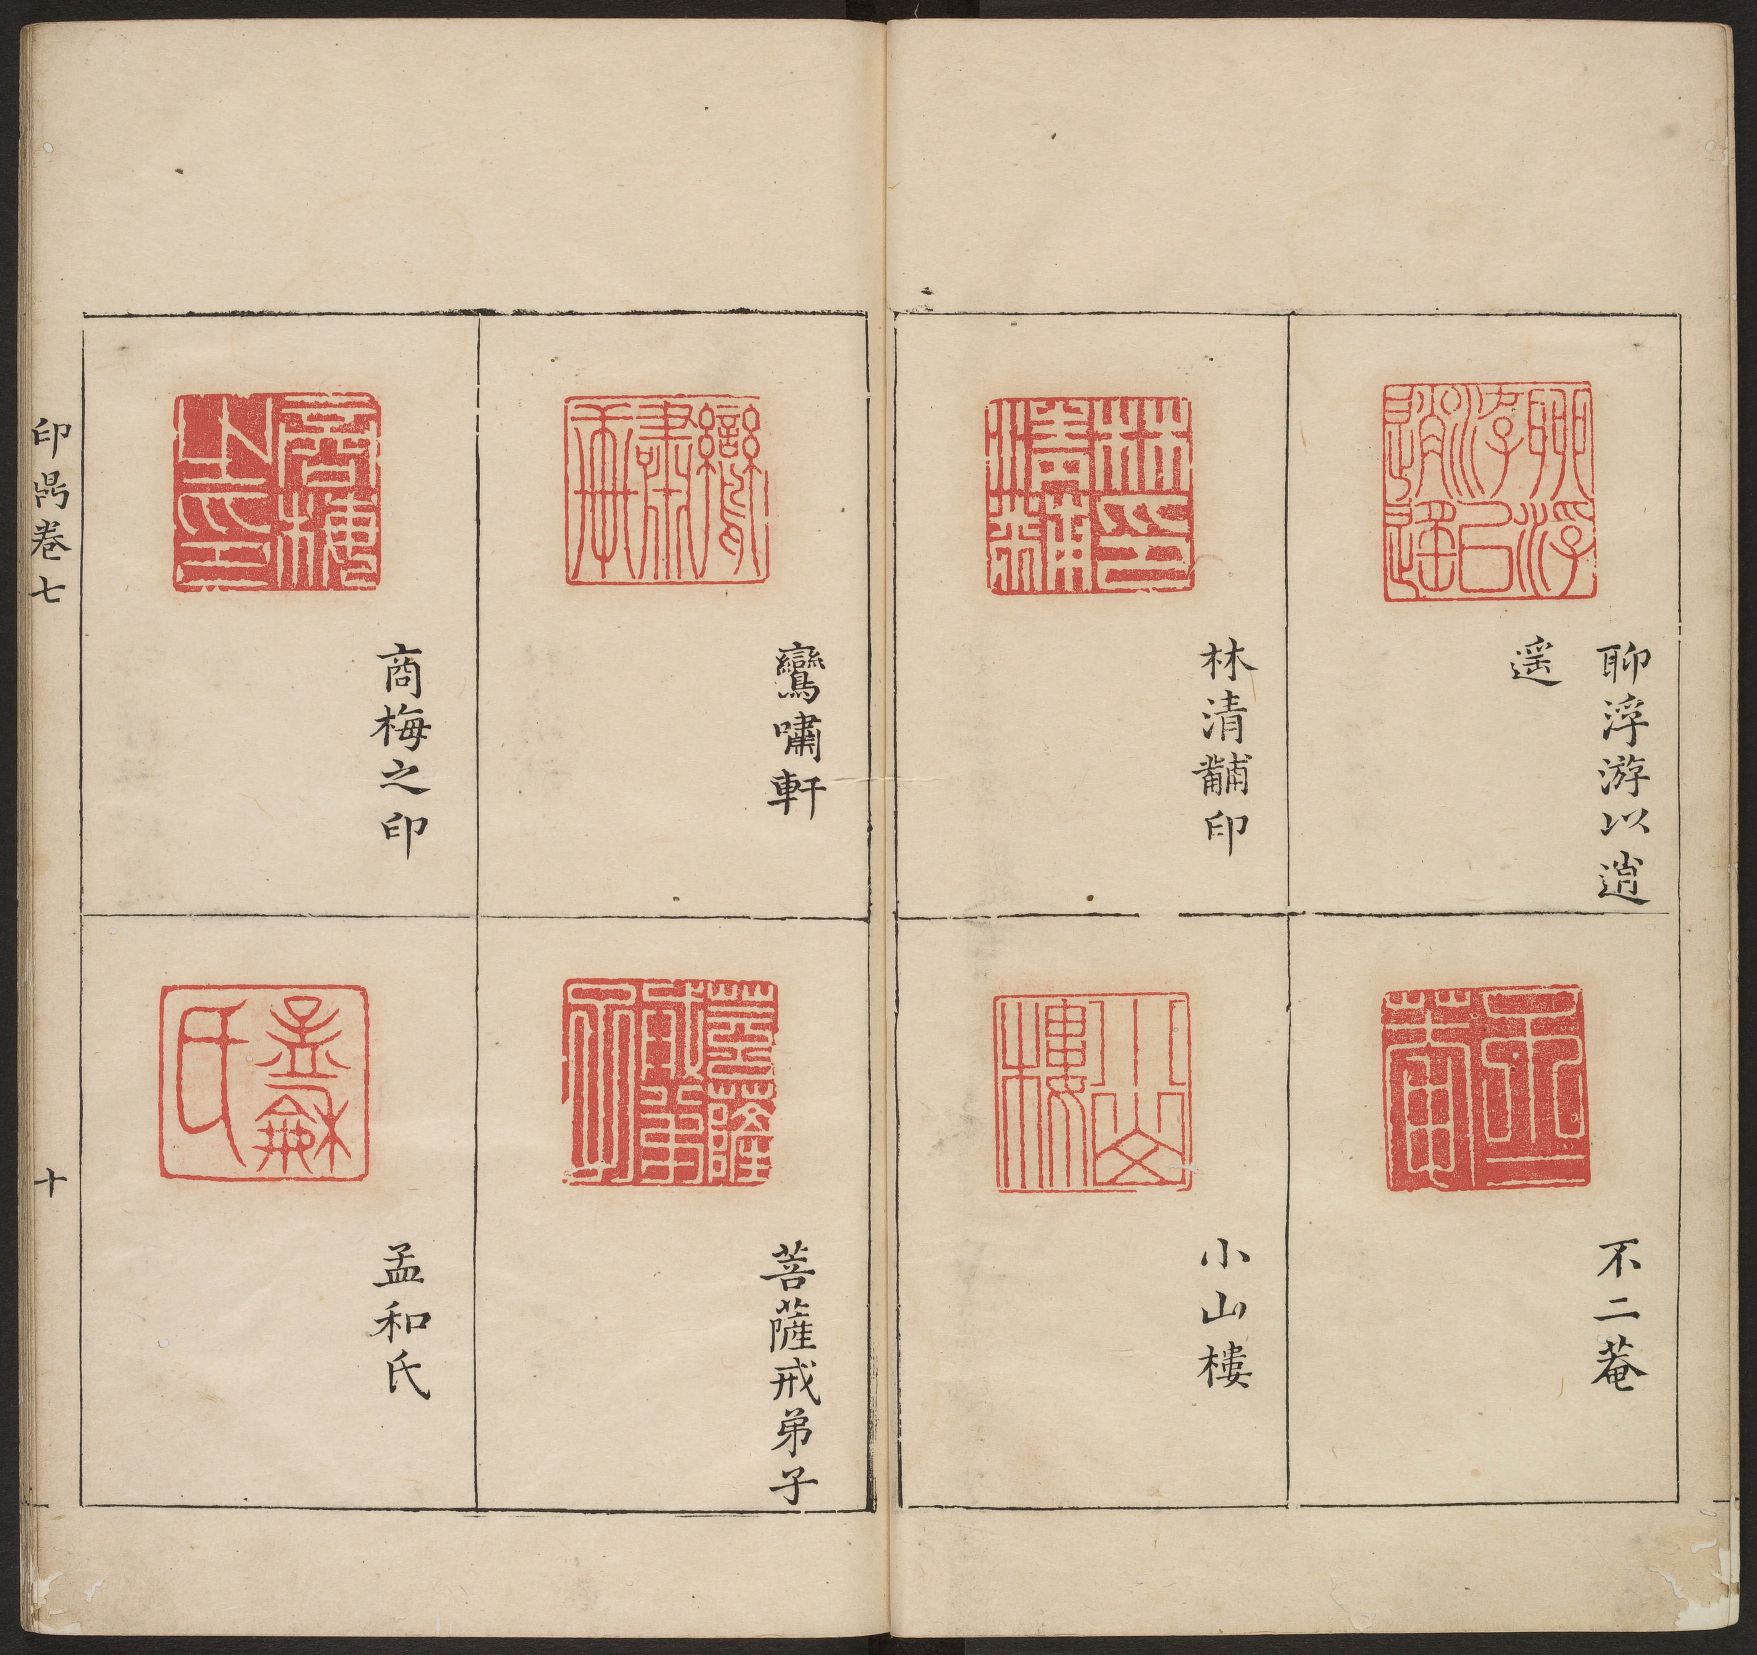 聊浮游以逍
遥
不二菴
林清黼印
小山樓
鸞嘯軒
菩薩戒弟子
商梅之印
孟和氏
印鼎卷七
十